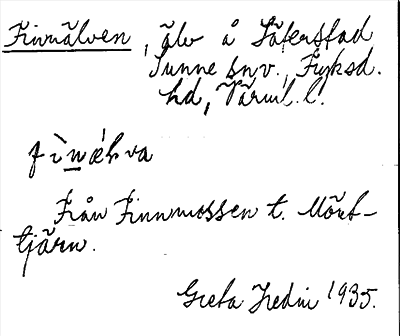 Finnälven, älv å Säterstad
Sunne sn v., Fryksd.
hd, Värml. l.
fìnæ̀lva
Från Finnmossen t. Mört-
tjärn.
Greta Hedin 1935.